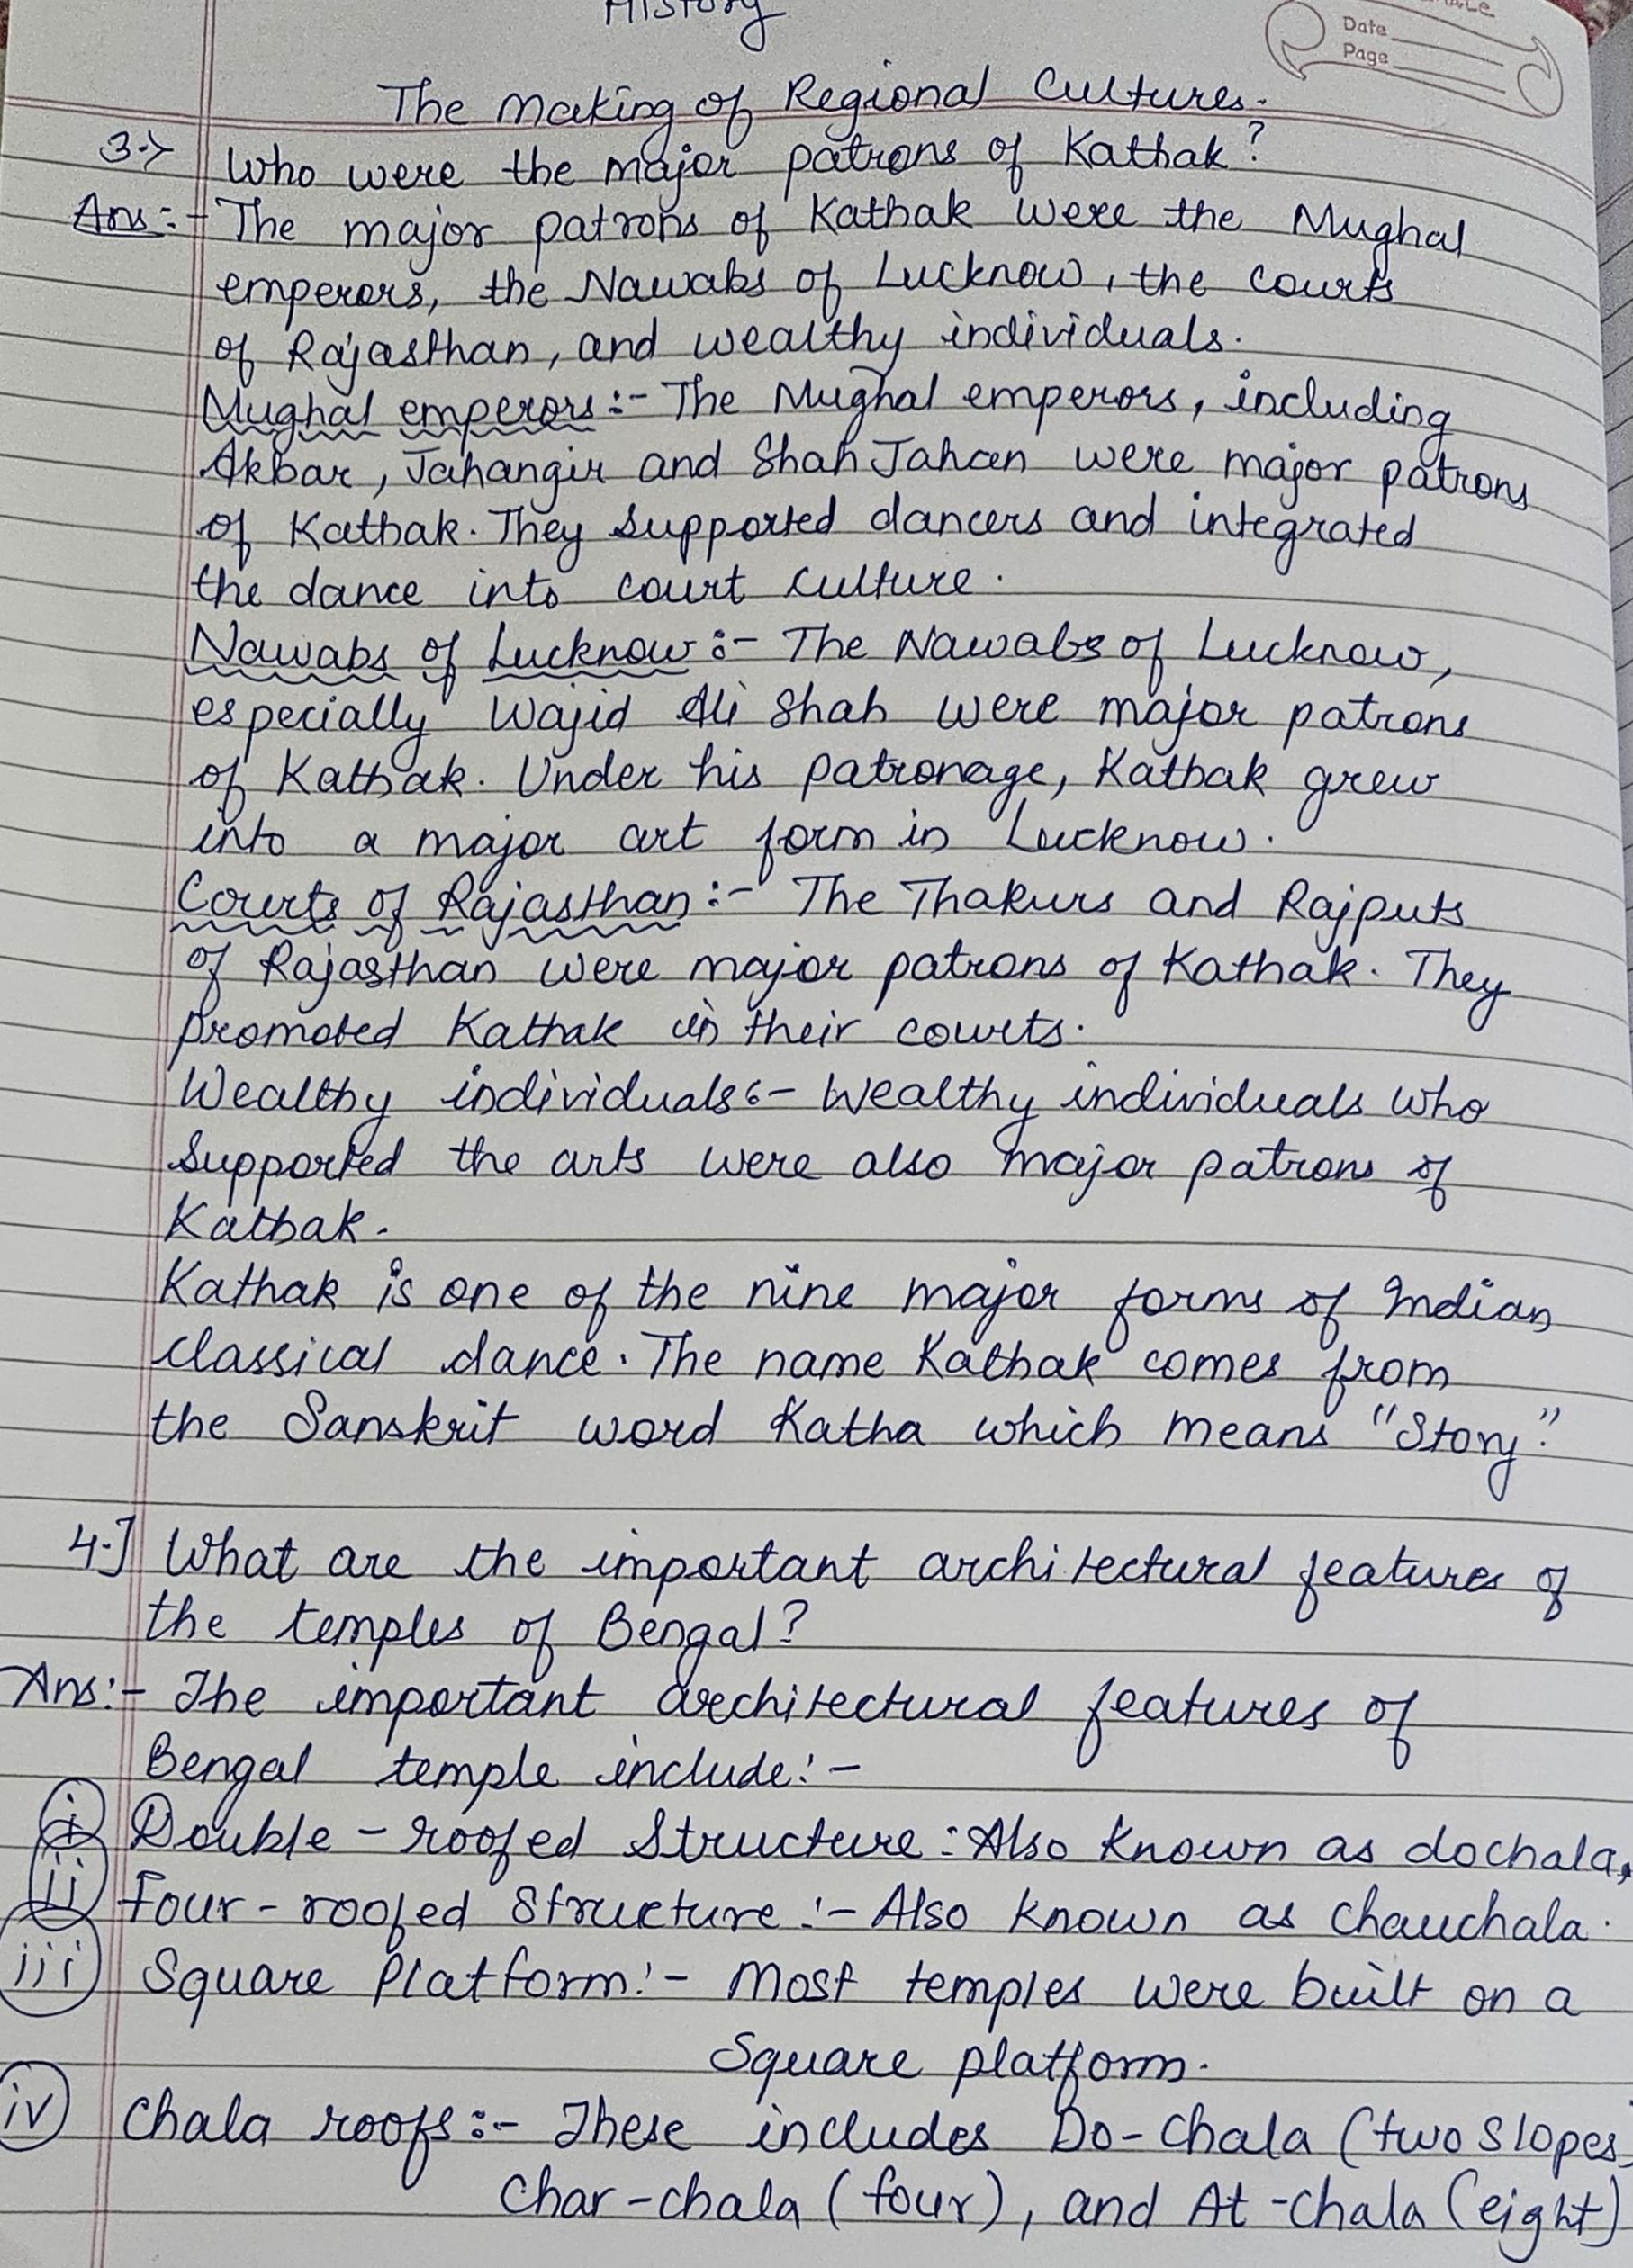 History
Date
Page
The Making of Regional Cultures.
3.> Who were the major patrons of Kathak?
Ans:- The major patrons of Kathak were the Mughal
emperors, the Nawabs of Lucknow, the courts
of Rajasthan, and wealthy individuals.
Mughal emperors:- The Mughal emperors, including
Akbar, Jahangir and Shah Jahan were major patrons
of Kathak. They supported dancers and integrated
the dance into court culture.
Nawabs of Lucknow:- The Nawabs of Lucknow,
especially Wajid Ali Shah were major patrons
of Kathak. Under his patronage, Kathak grew
into a major art form in Lucknow.
Courts of Rajasthan:- The Thakurs and Rajputs
of Rajasthan were major patrons of Kathak. They
promoted Kathak in their courts.
Wealthy individuals:- Wealthy individuals who
supported the arts were also major patrons of
Kathak.
Kathak is one of the nine major forms of Indian
classical dance. The name Kathak comes from
the Sanskrit word Katha which means "Story."
4.] What are the important architectural features of
the temples of Bengal?
Ans:- The important architectural features of
Bengal temple include:-
i Double-roofed Structure: Also known as dochala,
ii Four-roofed Structure:- Also known as chauchala.
iii Square Platform:- Most temples were built on a
Square platform.
iv Chala roofs:- These includes Do-chala (two slopes)
Char-chala (four), and At-chala (eight)